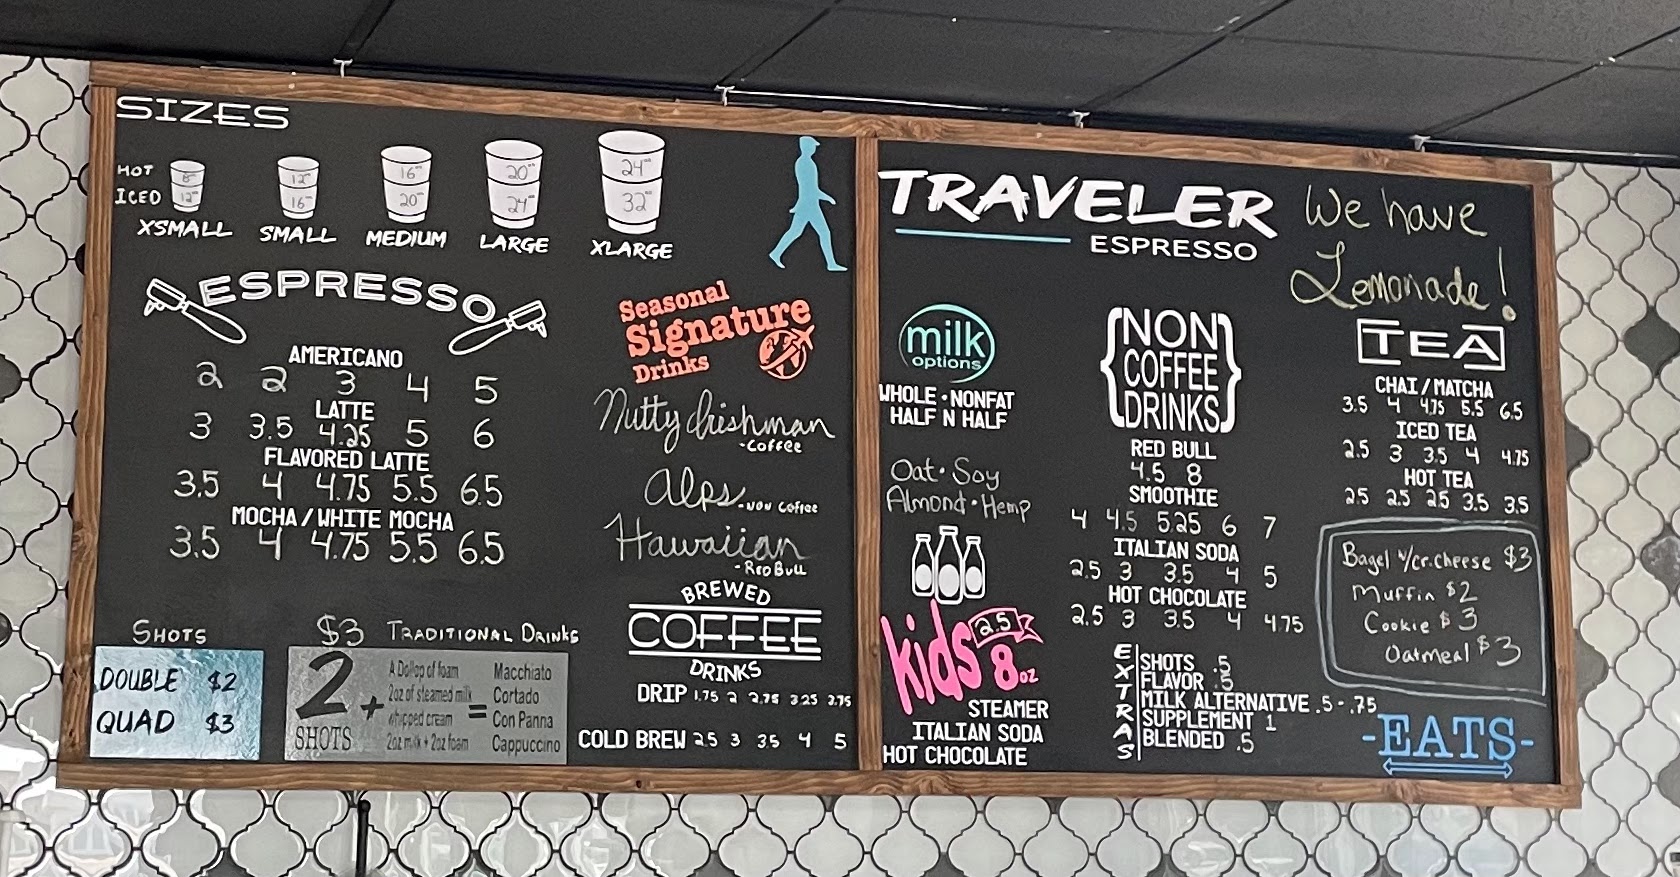 SIZES
HOT 8oz 12oz 16oz 20oz 24oz
ICED 12oz 16oz 20oz 24oz 32oz
XSMALL SMALL MEDIUM LARGE XLARGE
ESPRESSO
AMERICANO
2 2 3 4 5
LATTE
3 3.5 4.25 5 6
FLAVORED LATTE
3.5 4 4.75 5.5 6.5
MOCHA/WHITE MOCHA
3.5 4 4.75 5.5 6.5
SHOTS
DOUBLE $2
QUAD $3
$3 TRADITIONAL DRINKS
2 SHOTS +
A Dollop of foam = Macchiato
2oz of steamed milk = Cortado
whipped cream = Con Panna
2oz milk + 2oz foam = Cappuccino
Seasonal
Signature
Drinks
Nutty Irishman
-Coffee
Alps -Non Coffee
Hawaiian
-Red Bull
BREWED
COFFEE
DRINKS
DRIP 1.75 2 2.75 3.25 3.75
COLD BREW 2.5 3 3.5 4 5
TRAVELER
ESPRESSO
We have
Lemonade!
milk
options
WHOLE • NONFAT
HALF N HALF
Oat • Soy
Almond • Hemp
kids 2.5
8oz
STEAMER
ITALIAN SODA
HOT CHOCOLATE
{NON
COFFEE
DRINKS}
RED BULL
4.5 8
SMOOTHIE
4 4.5 5.25 6 7
ITALIAN SODA
2.5 3 3.5 4 5
HOT CHOCOLATE
2.5 3 3.5 4 4.75
EXTRAS
SHOTS .5
FLAVOR .5
MILK ALTERNATIVE .5-.75
SUPPLEMENT 1
BLENDED .5
TEA
CHAI/MATCHA
3.5 4 4.75 5.5 6.5
ICED TEA
2.5 3 3.5 4 4.75
HOT TEA
2.5 2.5 2.5 3.5 3.5
Bagel w/cr.cheese $3
Muffin $2
Cookie $3
Oatmeal $3
-EATS-